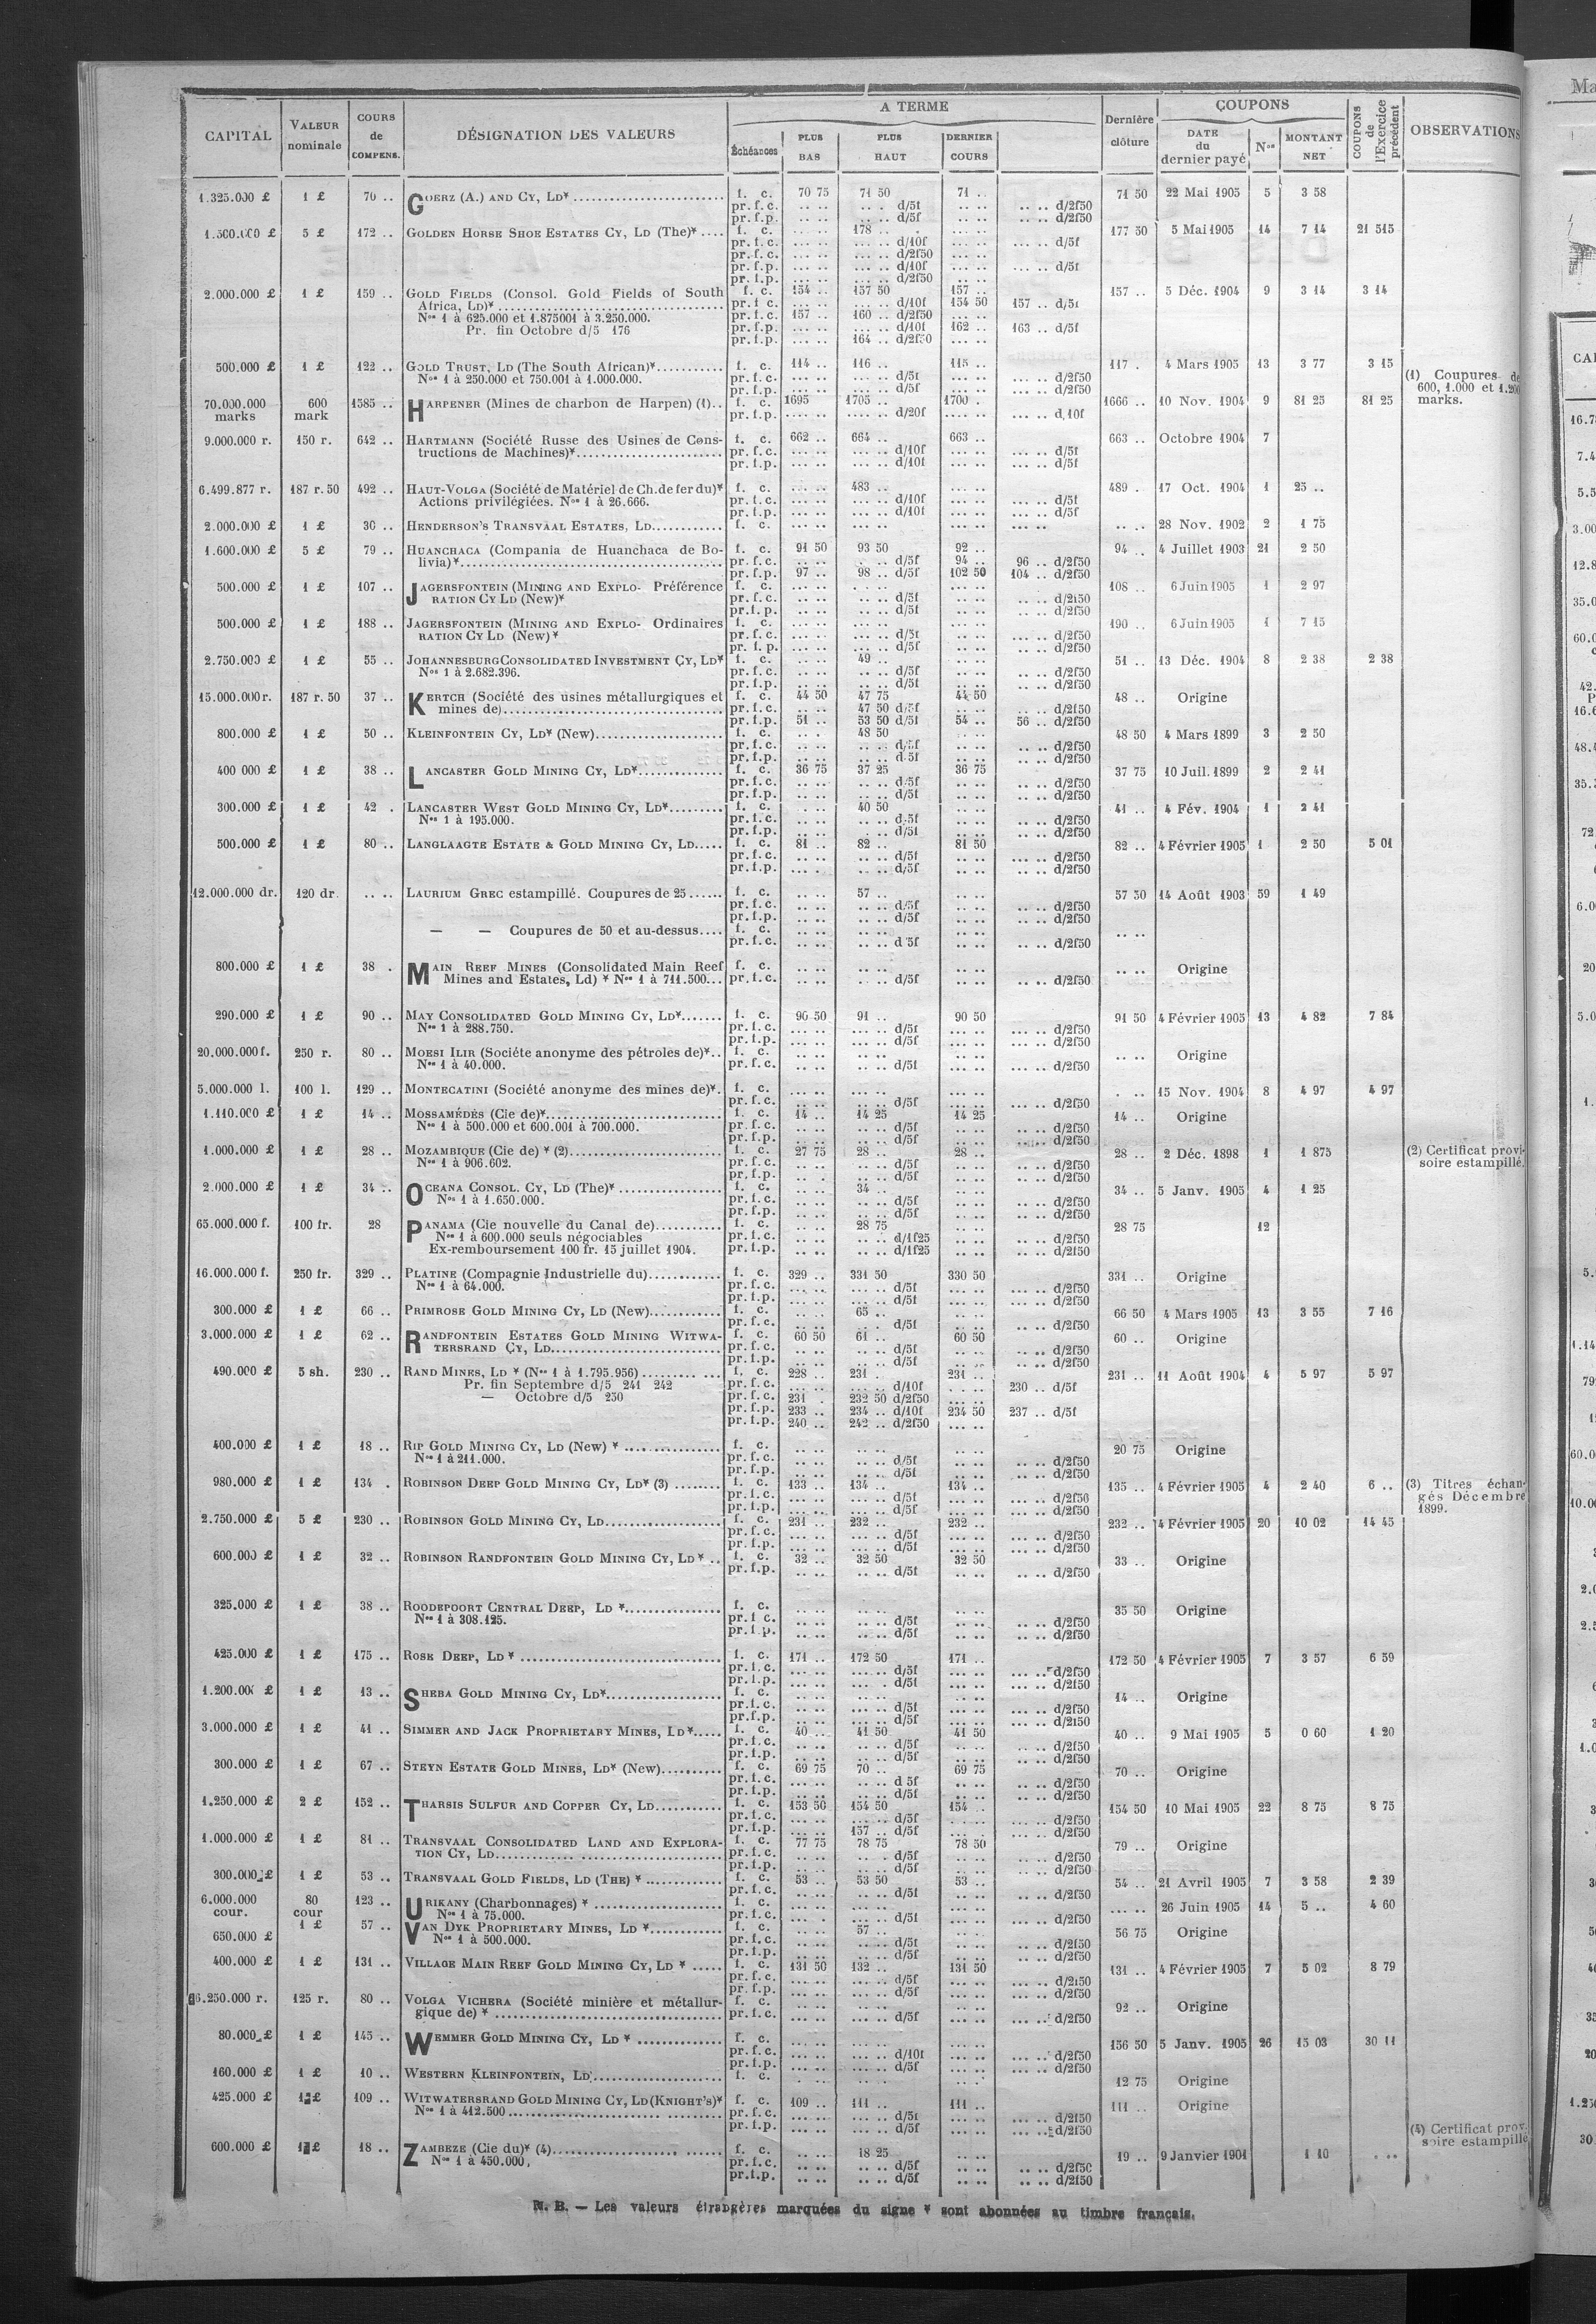 CAPITAL | VALEUR nominale | COURS de COMPENS. | DÉSIGNATION DES VALEURS | A TERME | Dernière clôture | COUPONS | COUPONS de l'Exercice précédent | OBSERVATIONS
Échéances | PLUS BAS | PLUS HAUT | DERNIER COURS | DATE du dernier payé | Nos | MONTANT NET
1.325.000 £ 1 £ 70 .. GOERZ (A.) AND CY, LD* f. c. 70 75 71 50 71 .. 71 50 22 Mai 1905 5 3 58
pr. f. c. d/5f d/2f50
pr. f. p. d/5f d/2f50
5 £ 172 .. GOLDEN HORSE SHOE ESTATES CY, LD (The)* f. c. 178 .. 177 50 5 Mai 1905 14 7 14 21 515
pr. f. c. d/10f d/5f
pr. f. c. d/2f50
pr. f. p. d/10f d/5f
pr. f. p. d/2f50
2.000.000 £ 1 £ 159 .. GOLD FIELDS (Consol. Gold Fields of South f. c. 154 .. 157 50 157 .. 157 .. 5 Déc. 1904 9 3 14 3 14
Africa, LD)* pr. f. c. d/10f 154 50 157 .. d/5f
Nos 1 à 625.000 et 1.875001 à 3.250.000. pr. f. c. 157 .. 160 .. d/2f50
Pr. fin Octobre d/5 176 pr. f. p. d/10f 162 .. 163 .. d/5f
pr. f. p. 164 .. d/2f50
500.000 £ 1 £ 122 .. GOLD TRUST, LD (The South African)* f. c. 114 .. 116 .. 115 .. 117 . 4 Mars 1905 13 3 77 3 15
Nos 1 à 250.000 et 750.001 à 1.000.000. pr. f. c. d/5f d/2f50
pr. f. p. d/5f d/2f50
(1) Coupures de
600, 1.000 et 1.200
marks.
70.000.000 marks 600 mark 1585 .. HARPENER (Mines de charbon de Harpen) (1).. f. c. 1695 1705 .. 1700 . 1666 .. 10 Nov. 1904 9 81 25 81 25
pr. f. p. d/20f d,10f
9.000.000 r. 150 r. 642 .. HARTMANN (Société Russe des Usines de Cons- f. c. 662 .. 664 .. 663 .. 663 .. Octobre 1904 7
tructions de Machines)* pr. f. c. d/10f d/5f
pr. f. p. d/10f d/5f
6.499.877 r. 187 r. 50 492 .. HAUT-VOLGA (Société de Matériel de Ch. de fer du)* f. c. 483 .. 489 . 17 Oct. 1904 1 25 ..
Actions privilégiées. Nos 1 à 26.666. pr. f. c. d/10f d/5f
pr. f. p. d/10f d/5f
2.000.000 £ 1 £ 30 .. HENDERSON'S TRANSVAAL ESTATES, LD f. c. 28 Nov. 1902 2 1 75
1.600.000 £ 5 £ 79 .. HUANCHACA (Compania de Huanchaca de Bo- f. c. 91 50 93 50 92 .. 94 .. 4 Juillet 1903 21 2 50
livia)* pr. f. c. d/5f 94 .. 96 .. d/2f50
pr. f. p. 97 .. 98 .. d/5f 102 50 104 .. d/2f50
500.000 £ 1 £ 107 .. JAGERSFONTEIN (MINING AND EXPLO- Préférence f. c. 108 6 Juin 1905 1 2 97
RATION CY LD (New)* pr. f. c. d/5f d/2f50
pr. f. p. d/5f d/2f50
500.000 £ 1 £ 188 .. JAGERSFONTEIN (MINING AND EXPLO- Ordinaires f. c. 190 .. 6 Juin 1905 1 7 15
RATION CY LD (New)* pr. f. c. d/5f d/2f50
pr. f. p. d/5f d/2f50
2.750.000 £ 1 £ 55 .. JOHANNESBURG CONSOLIDATED INVESTMENT CY, LD* f. c. 49 .. 51 .. 13 Déc. 1904 8 2 38 2 38
Nos 1 à 2.682.396. pr. f. c. d/5f d/2f50
pr. f. p. d/5f d/2f50
15.000.000 r. 187 r. 50 37 .. KERTCH (Société des usines métallurgiques et f. c. 44 50 47 75 44 50 48 .. Origine
mines de) pr. f. c. 47 50 d/5f d/2f50
pr. f. p. 51 .. 53 50 d/5f 54 .. 56 .. d/2f50
800.000 £ 1 £ 50 .. KLEINFONTEIN CY, LD* (New) f. c. 48 50 48 50 4 Mars 1899 3 2 50
pr. f. c. d/5f d/2f50
pr. f. p. d/5f d/2f50
400 000 £ 1 £ 38 .. LANCASTER GOLD MINING CY, LD* f. c. 36 75 37 25 36 75 37 75 10 Juil. 1899 2 2 41
pr. f. c. d/5f d/2f50
pr. f. p. d/5f d/2f50
300.000 £ 1 £ 42 . LANCASTER WEST GOLD MINING CY, LD* f. c. 40 50 41 .. 4 Fév. 1904 1 2 41
Nos 1 à 195.000. pr. f. c. d/5f d/2f50
pr. f. p. d/5f d/2f50
500.000 £ 1 £ 80 .. LANGLAAGTE ESTATE & GOLD MINING CY, LD f. c. 81 .. 82 .. 81 50 82 .. 4 Février 1905 1 2 50 5 01
pr. f. c. d/5f d/2f50
pr. f. p. d/5f d/2f50
12.000.000 dr. 120 dr. LAURIUM GREC estampillé. Coupures de 25 f. c. 57 .. 57 50 14 Août 1903 59 1 49
pr. f. c. d/5f d/2f50
pr. f. p. d/5f d/2f50
— — Coupures de 50 et au-dessus f. c.
pr. f. c. d/5f d/2f50
800.000 £ 1 £ 38 . MAIN REEF MINES (Consolidated Main Reef f. c. Origine
Mines and Estates, Ld) * Nos 1 à 711.500 pr. f. c. d/5f d/2f50
290.000 £ 1 £ 90 .. MAY CONSOLIDATED GOLD MINING CY, LD* f. c. 90 50 91 .. 90 50 91 50 4 Février 1905 13 4 82 7 84
Nos 1 à 288.750. pr. f. c. d/5f d/2f50
pr. f. p. d/5f d/2f50
20.000.000 f. 250 r. 80 .. MOESI ILIR (Sociéte anonyme des pétroles de)* f. c. Origine
Nos 1 à 40.000. pr. f. c. d/5f d/2f50
5.000.000 l. 100 l. 129 .. MONTECATINI (Société anonyme des mines de)* f. c. 15 Nov. 1904 8 4 97 4 97
pr. f. c. d/5f d/2f50
1.110.000 £ 1 £ 14 .. MOSSAMÉDÈS (Cie de)* f. c. 14 .. 14 25 14 25 14 .. Origine
Nos 1 à 500.000 et 600.001 à 700.000. pr. f. c. d/5f d/2f50
pr. f. p. d/5f d/2f50
1.000.000 £ 1 £ 28 .. MOZAMBIQUE (Cie de) * (2) f. c. 27 75 28 .. 28 .. 28 .. 2 Déc. 1898 1 1 875 (2) Certificat provi-
Nos 1 à 906.602. pr. f. c. d/5f d/2f50 soire estampillé.
pr. f. p. d/5f d/2f50
2.000.000 £ 1 £ 34 .. OCEANA CONSOL. CY, LD (The)* f. c. 34 .. 34 .. 5 Janv. 1905 4 1 25
Nos 1 à 1.650.000. pr. f. c. d/5f d/2f50
pr. f. p. d/5f d/2f50
65.000.000 f. 100 fr. 28 PANAMA (Cie nouvelle du Canal de) f. c. 28 75 28 75 12
Nos 1 à 600.000 seuls négociables pr. f. c. d/1f25 d/2f50
Ex-remboursement 100 fr. 15 juillet 1904. pr. f. p. d/1f25 d/2f50
16.000.000 f. 250 fr. 329 .. PLATINE (Compagnie Industrielle du) f. c. 329 .. 331 50 330 50 331 .. Origine
Nos 1 à 64.000. pr. f. c. d/5f d/2f50
pr. f. p. d/5f d/2f50
300.000 £ 1 £ 66 .. PRIMROSE GOLD MINING CY, LD (New) f. c. 65 .. 66 50 4 Mars 1905 13 3 55 7 16
pr. f. c. d/5f d/2f50
3.000.000 £ 1 £ 62 .. RANDFONTEIN ESTATES GOLD MINING WITWA- f. c. 60 50 61 .. 60 50 60 .. Origine
TERSRAND CY, LD pr. f. c. d/5f d/2f50
pr. f. p. d/5f d/2f50
490.000 £ 5 sh. 230 .. RAND MINES, LD * (Nos 1 à 1.795.956) f. c. 228 .. 231 . 231 .. 231 .. 11 Août 1904 4 5 97 5 97
Pr. fin Septembre d/5 241 242 pr. f. c. d/10f 230 .. d/5f
— Octobre d/5 250 pr. f. c. 231 . 232 50 d/2f50
pr. f. p. 233 .. 234 .. d/10f 234 50 237 .. d/5f
pr. f. p. 240 .. 242 .. d/2f50
400.000 £ 1 £ 18 .. RIP GOLD MINING CY, LD (New) * f. c. 20 75 Origine
Nos 1 à 211.000. pr. f. c. d/5f d/2f50
pr. f. p. d/5f d/2f50
980.000 £ 1 £ 134 . ROBINSON DEEP GOLD MINING CY, LD* (3) f. c. 133 .. 134 .. 134 .. 135 .. 4 Février 1905 4 2 40 6 .. (3) Titres échan-
pr. f. c. d/5f d/2f50 gés Décembre
pr. f. p. d/5f d/2f50 1899.
2.750.000 £ 5 £ 230 .. ROBINSON GOLD MINING CY, LD f. c. 231 .. 232 .. 232 .. 232 .. 4 Février 1905 20 10 02 14 45
pr. f. c. d/5f d/2f50
pr. f. p. d/5f d/2f50
600.000 £ 1 £ 32 .. ROBINSON RANDFONTEIN GOLD MINING CY, LD * f. c. 32 .. 32 50 32 50 33 .. Origine
pr. f. p. d/5f d/2f50
325.000 £ 1 £ 38 .. ROODEPOORT CENTRAL DEEP, LD * f. c. 35 50 Origine
Nos 1 à 308.125. pr. f. c. d/5f d/2f50
pr. f. p. d/5f d/2f50
425.000 £ 1 £ 175 .. ROSE DEEP, LD * f. c. 171 .. 172 50 171 .. 172 50 4 Février 1905 7 3 57 6 59
pr. f. c. d/5f d/2f50
pr. f. p. d/5f d/2f50
1 £ 13 .. SHEBA GOLD MINING CY, LD* f. c. 14 .. Origine
pr. f. c. d/5f d/2f50
pr. f. p. d/5f d/2f50
3.000.000 £ 1 £ 41 .. SIMMER AND JACK PROPRIETARY MINES, LD* f. c. 40 .. 41 50 41 50 40 .. 9 Mai 1905 5 0 60 1 20
pr. f. c. d/5f d/2f50
pr. f. p. d/5f d/2f50
300.000 £ 1 £ 67 .. STEYN ESTATE GOLD MINES, LD* (New) f. c. 69 75 70 .. 69 75 70 .. Origine
pr. f. c. d 5f d/2f50
pr. f. p. d/5f d/2f50
1.250.000 £ 2 £ 152 .. THARSIS SULFUR AND COPPER CY, LD f. c. 153 50 154 50 154 .. 154 50 10 Mai 1905 22 8 75 8 75
pr. f. c. d/5f d/2f50
pr. f. p. 157 .. d/5f d/2f50
1.000.000 £ 1 £ 81 .. TRANSVAAL CONSOLIDATED LAND AND EXPLORA- f. c. 77 75 78 75 78 50 79 .. Origine
TION CY, LD pr. f. c. d/5f d/2f50
pr. f. p. d/5f d/2f50
300.000 £ 1 £ 53 .. TRANSVAAL GOLD FIELDS, LD (THE) * f. c. 53 .. 53 50 53 .. 54 .. 21 Avril 1905 7 3 58 2 39
pr. f. c. d/5f d/2f50
6.000.000 cour. 80 cour 123 .. URIKANY (Charbonnages) * f. c. 26 Juin 1905 14 5 .. 4 60
Nos 1 à 75.000. pr. f. c. d/5f d/2f50
650.000 £ 1 £ 57 .. VAN DYK PROPRIETARY MINES, LD * f. c. 57 .. 56 75 Origine
Nos 1 à 500.000. pr. f. c. d/5f d/2f50
pr. f. p. d/5f d/2f50
400.000 £ 1 £ 131 .. VILLAGE MAIN REEF GOLD MINING CY, LD * f. c. 131 50 132 .. 131 50 131 .. 4 Février 1905 7 5 02 8 79
pr. f. c. d/5f d/2f50
pr. f. p. d/5f d/2f50
6.250.000 r. 125 r. 80 .. VOLGA VICHERA (Société minière et métallur- f. c. 92 .. Origine
gique de) * pr. f. c. d/5f d/2f50
80.000 £ 1 £ 145 .. WEMMER GOLD MINING CY, LD * f. c. 156 50 5 Janv. 1905 26 15 03 30 11
pr. f. c. d/10f d/2f50
pr. f. p. d/5f d/2f50
160.000 £ 1 £ 10 .. WESTERN KLEINFONTEIN, LD f. c. 12 75 Origine
425.000 £ 1 £ 109 .. WITWATERSRAND GOLD MINING CY, LD (KNIGHT'S)* f. c. 109 .. 111 .. 111 .. 111 .. Origine
Nos 1 à 412.500 pr. f. c. d/5f d/2f50
pr. f. p. d/5f d/2f50
(4) Certificat prov.
soire estampillé
600.000 £ 1 £ 18 .. ZAMBEZE (Cie du)* (4) f. c. 18 25 19 .. 9 Janvier 1901 1 10
Nos 1 à 450.000, pr. f. c. d/5f d/2f50
pr. f. p. d/5f d/2f50
N. B. — Les valeurs étrangères marquées du signe * sont abonnées au timbre français.